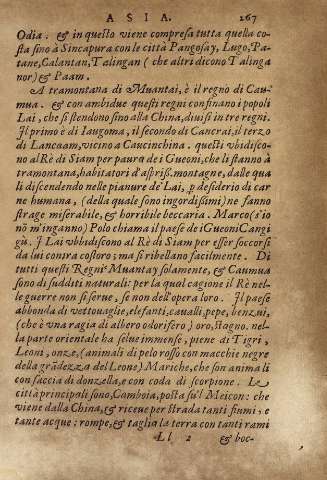 A S I A. 267
Odia. & in questo viene compresa tutta quella co-
sta sino à Sincapura con le città Pangosay, Lugo, Pa-
tane, Calantan, Talingan ( che altri dicono Talinga
nor) & Paam.
A tramontana di Muantai, è il regno di Cau-
mua. & con ambidue questi regni confinano i popoli
Lai, che si stendono sino alla China, divisi in tre regni.
Il primo è di Iangoma, il secondo di Cancrai, il terzo
di Lancaam, vicino a Caucinchina. questi vbidisco-
no al Rè di Siam per paura de i Gueoni, che li stanno à
tramontana, habitatori d'aspriss. montagne, dalle qua
li discendendo nelle pianure de' Lai, p desiderio di car
ne humana, (della quale sono ingordissimi) ne fanno
strage miserabile, & horribile beccaria. Marco (s'io
nõ m'inganno) Polo chiama il paese de i Gueoni Cangi
gù. I Lai vbbidiscono al Rè di Siam per esser soccorsi
da lui contra costoro; ma si ribellano facilmente. Di
tutti questi Regni Muantay solamente, & Caumua
sono di sudditi naturali: per la qual cagione il Rè nel-
le guerre non si serue, se non dell'opera loro. Il paese
abbonda di vettouaglie, elefanti, caualli, pepe, benzui,
(che è vna ragia di albero odorifero) oro, stagno. nel-
la parte orientale ha selue immense, piene di Tigri,
Leoni, onze, (animali di pelo rosso con macchie negre
della grãdezza del Leone) Mariche, che son animali
con faccia di donzella, e con coda di scorpione. Le
città principali sono, Camboia, posta su'l Meicon: che
viene dalla China, & riceue per strada tanti fiumi, e
tante acque: rompe, & taglia la terra con tanti rami
Ll 2 & boc-